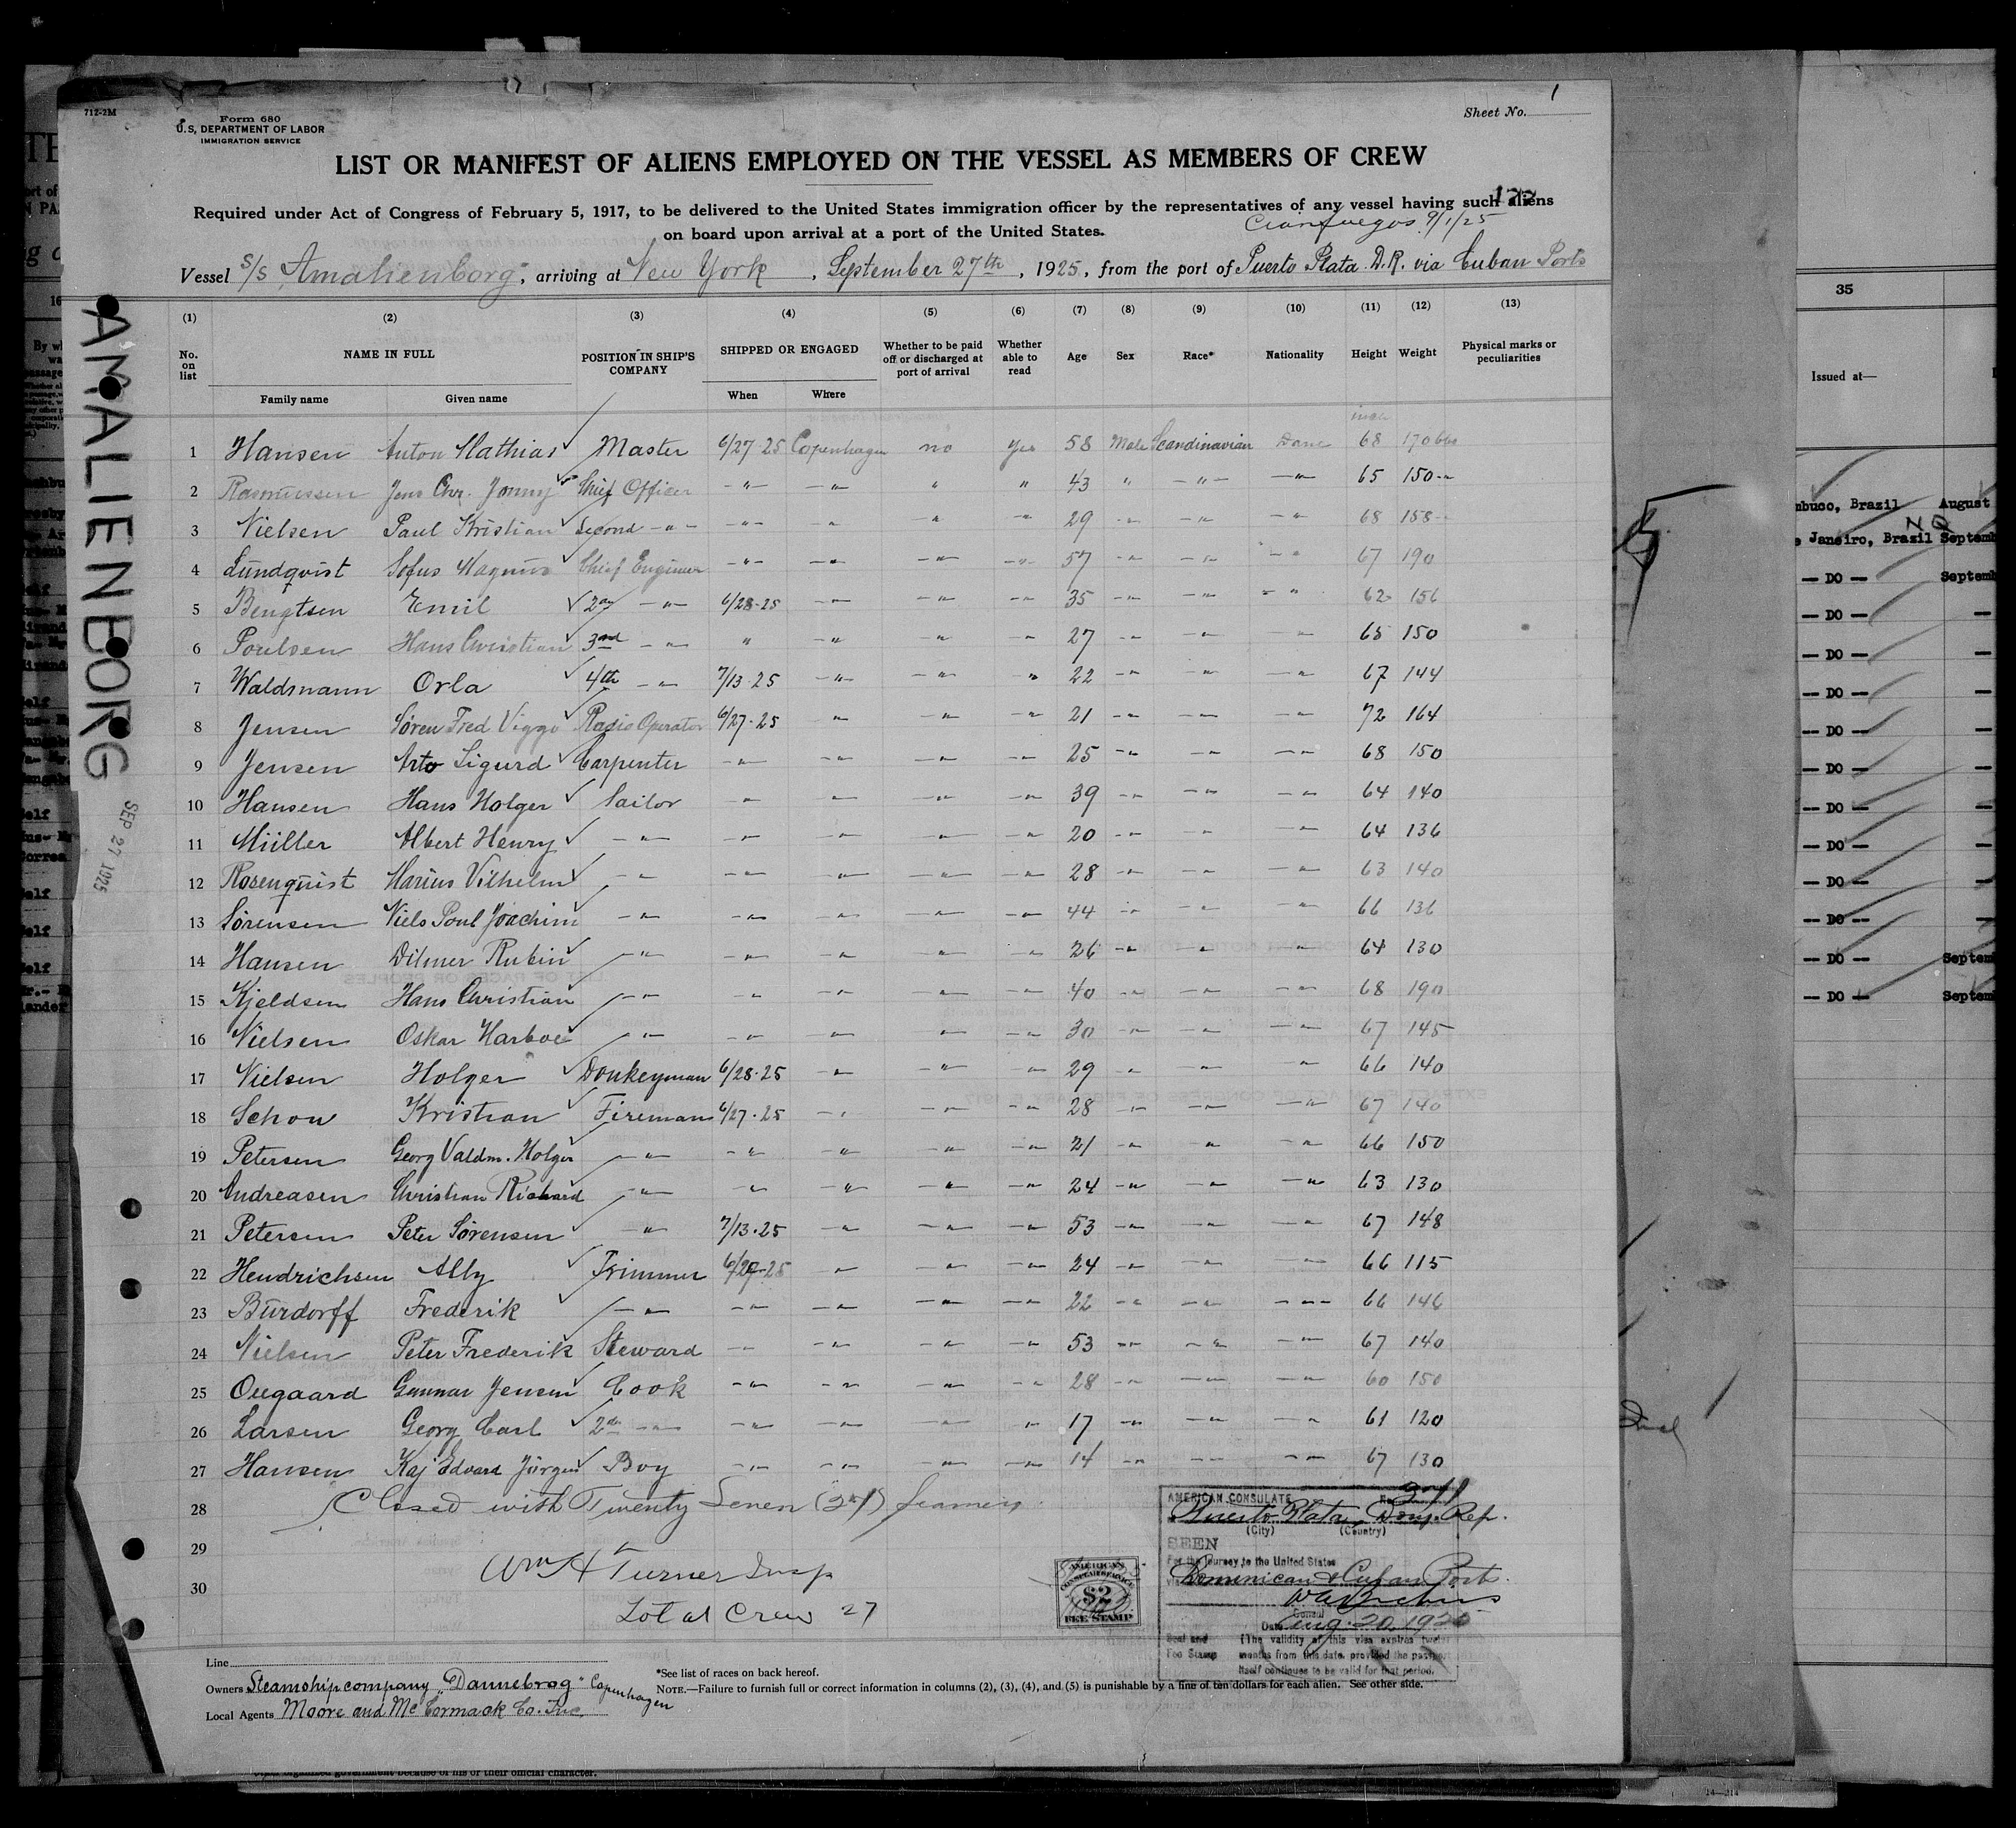 712-2M
Form 680
U.S. DEPARTMENT OF LABOR
IMMIGRATION SERVICE
Sheet No. 1
LIST OR MANIFEST OF ALIENS EMPLOYED ON THE VESSEL AS MEMBERS OF CREW
Required under Act of Congress of February 5, 1917, to be delivered to the United States immigration officer by the representatives of any vessel having such aliens
on board upon arrival at a port of the United States.
Cienfuegos 9/1/25
Vessel S/S "Amalienborg", arriving at New York, September 27th, 1925, from the port of Puerto Plata D.R. via Cuban Ports
(1) (2) (3) (4) (5) (6) (7) (8) (9) (10) (11) (12) (13)
No. on list NAME IN FULL POSITION IN SHIP'S COMPANY SHIPPED OR ENGAGED Whether to be paid off or discharged at port of arrival Whether able to read Age Sex Race* Nationality Height Weight Physical marks or peculiarities
Family name Given name When Where
1 Hansen Anton Mathias Master 6/27-25 Copenhagen no Yes 58 Male Scandinavian Dane 68 170 lbs
2 Rasmussen Jens Chr. Jonny Chief Officer -"- -"- " " 43 " -"- -"- 65 150 -"-
3 Nielsen Paul Kristian Second -"- -"- -"- " -"- 29 -"- -"- -"- 68 158 -"-
4 Lundqvist Sofus Magnus Chief Engineer -"- -"- -"- -"- 57 -"- -"- -"- 67 190
5 Bengtsen Emil 2nd -"- 6/28-25 -"- -"- -"- 35 -"- -"- -"- 62 156
6 Poulsen Hans Christian 3rd -"- " -"- -"- -"- 27 -"- -"- -"- 65 150
7 Waldsmann Orla 4th -"- 7/13-25 -"- -"- -"- 22 -"- -"- -"- 67 144
8 Jensen Søren Fred Viggo Radio Operator 6/27-25 -"- -"- -"- 21 -"- -"- -"- 72 164
9 Jensen Arto Sigurd Carpenter -"- -"- -"- -"- 25 -"- -"- -"- 68 150
10 Hansen Hans Holger Sailor -"- -"- -"- -"- 39 -"- -"- -"- 64 140
11 Müller Albert Henry -"- -"- -"- -"- -"- 20 -"- -"- -"- 64 136
12 Rosenquist Marius Vilhelm -"- -"- -"- -"- -"- 28 -"- -"- -"- 63 140
13 Sørensen Niels Poul Joachim -"- -"- -"- -"- -"- 44 -"- -"- -"- 66 136
14 Hansen Dilmer Rubin -"- -"- -"- -"- -"- 26 -"- -"- -"- 64 130
15 Kjeldsen Hans Christian -"- -"- -"- -"- -"- 40 -"- -"- -"- 68 190
16 Nielsen Oskar Harboe -"- -"- -"- -"- -"- 30 -"- -"- -"- 67 145
17 Nielsen Holger Donkeyman 6/28-25 -"- -"- -"- 29 -"- -"- -"- 66 140
18 Schou Kristian Fireman 6/27-25 -"- -"- -"- 28 -"- -"- -"- 67 140
19 Petersen Georg Valdm. Holger -"- -"- -"- -"- -"- 21 -"- -"- -"- 66 150
20 Andreasen Christian Richard -"- -"- -"- -"- -"- 24 -"- -"- -"- 63 130
21 Petersen Peter Sørensen -"- 7/13-25 -"- -"- -"- 53 -"- -"- -"- 67 148
22 Hendrichsen Ally Trimmer 6/27-25 -"- -"- -"- 24 -"- -"- -"- 66 115
23 Burdorff Frederik -"- -"- -"- -"- -"- 22 -"- -"- -"- 66 146
24 Nielsen Peter Frederik Steward -"- -"- -"- -"- 53 -"- -"- -"- 67 140
25 Ougaard Gunnar Jensen Cook -"- -"- -"- -"- 28 -"- -"- -"- 60 150
26 Larsen Georg Carl 2nd -"- -"- -"- -"- -"- 17 -"- -"- -"- 61 120
27 Hansen Kaj Edvard Jörgen Boy -"- -"- -"- -"- 14 -"- -"- -"- 67 130
28 Closed with Twenty Seven (27) seamen
29
Wm H Turner Insp
30
Total Crew 27
AMALIENBORG
SEP 27 1925
AMERICAN CONSULATE
Puerto Plata, Dom. Rep.
(City) (Country)
SEEN
For the journey to the United States
Dominican & Cuban Ports
Consul
Date Aug. 20, 1925
Seal and Fee Stamp
(The validity of this visa expires twelve
months from this date, provided the passport
itself continues to be valid for that period.
AMERICAN
CONSULAR SERVICE
$2
FEE STAMP
Line
Owners Steamshipcompany "Dannebrog" Copenhagen
Local Agents Moore and McCormack Co. Inc.
*See list of races on back hereof.
NOTE.—Failure to furnish full or correct information in columns (2), (3), (4), and (5) is punishable by a fine of ten dollars for each alien. See other side.
35
Issued at—
Janeiro, Brazil
— DO —
— DO —
— DO —
— DO —
— DO —
— DO —
— DO —
— DO —
— DO —
— DO —
— DO —
— DO —
14—214